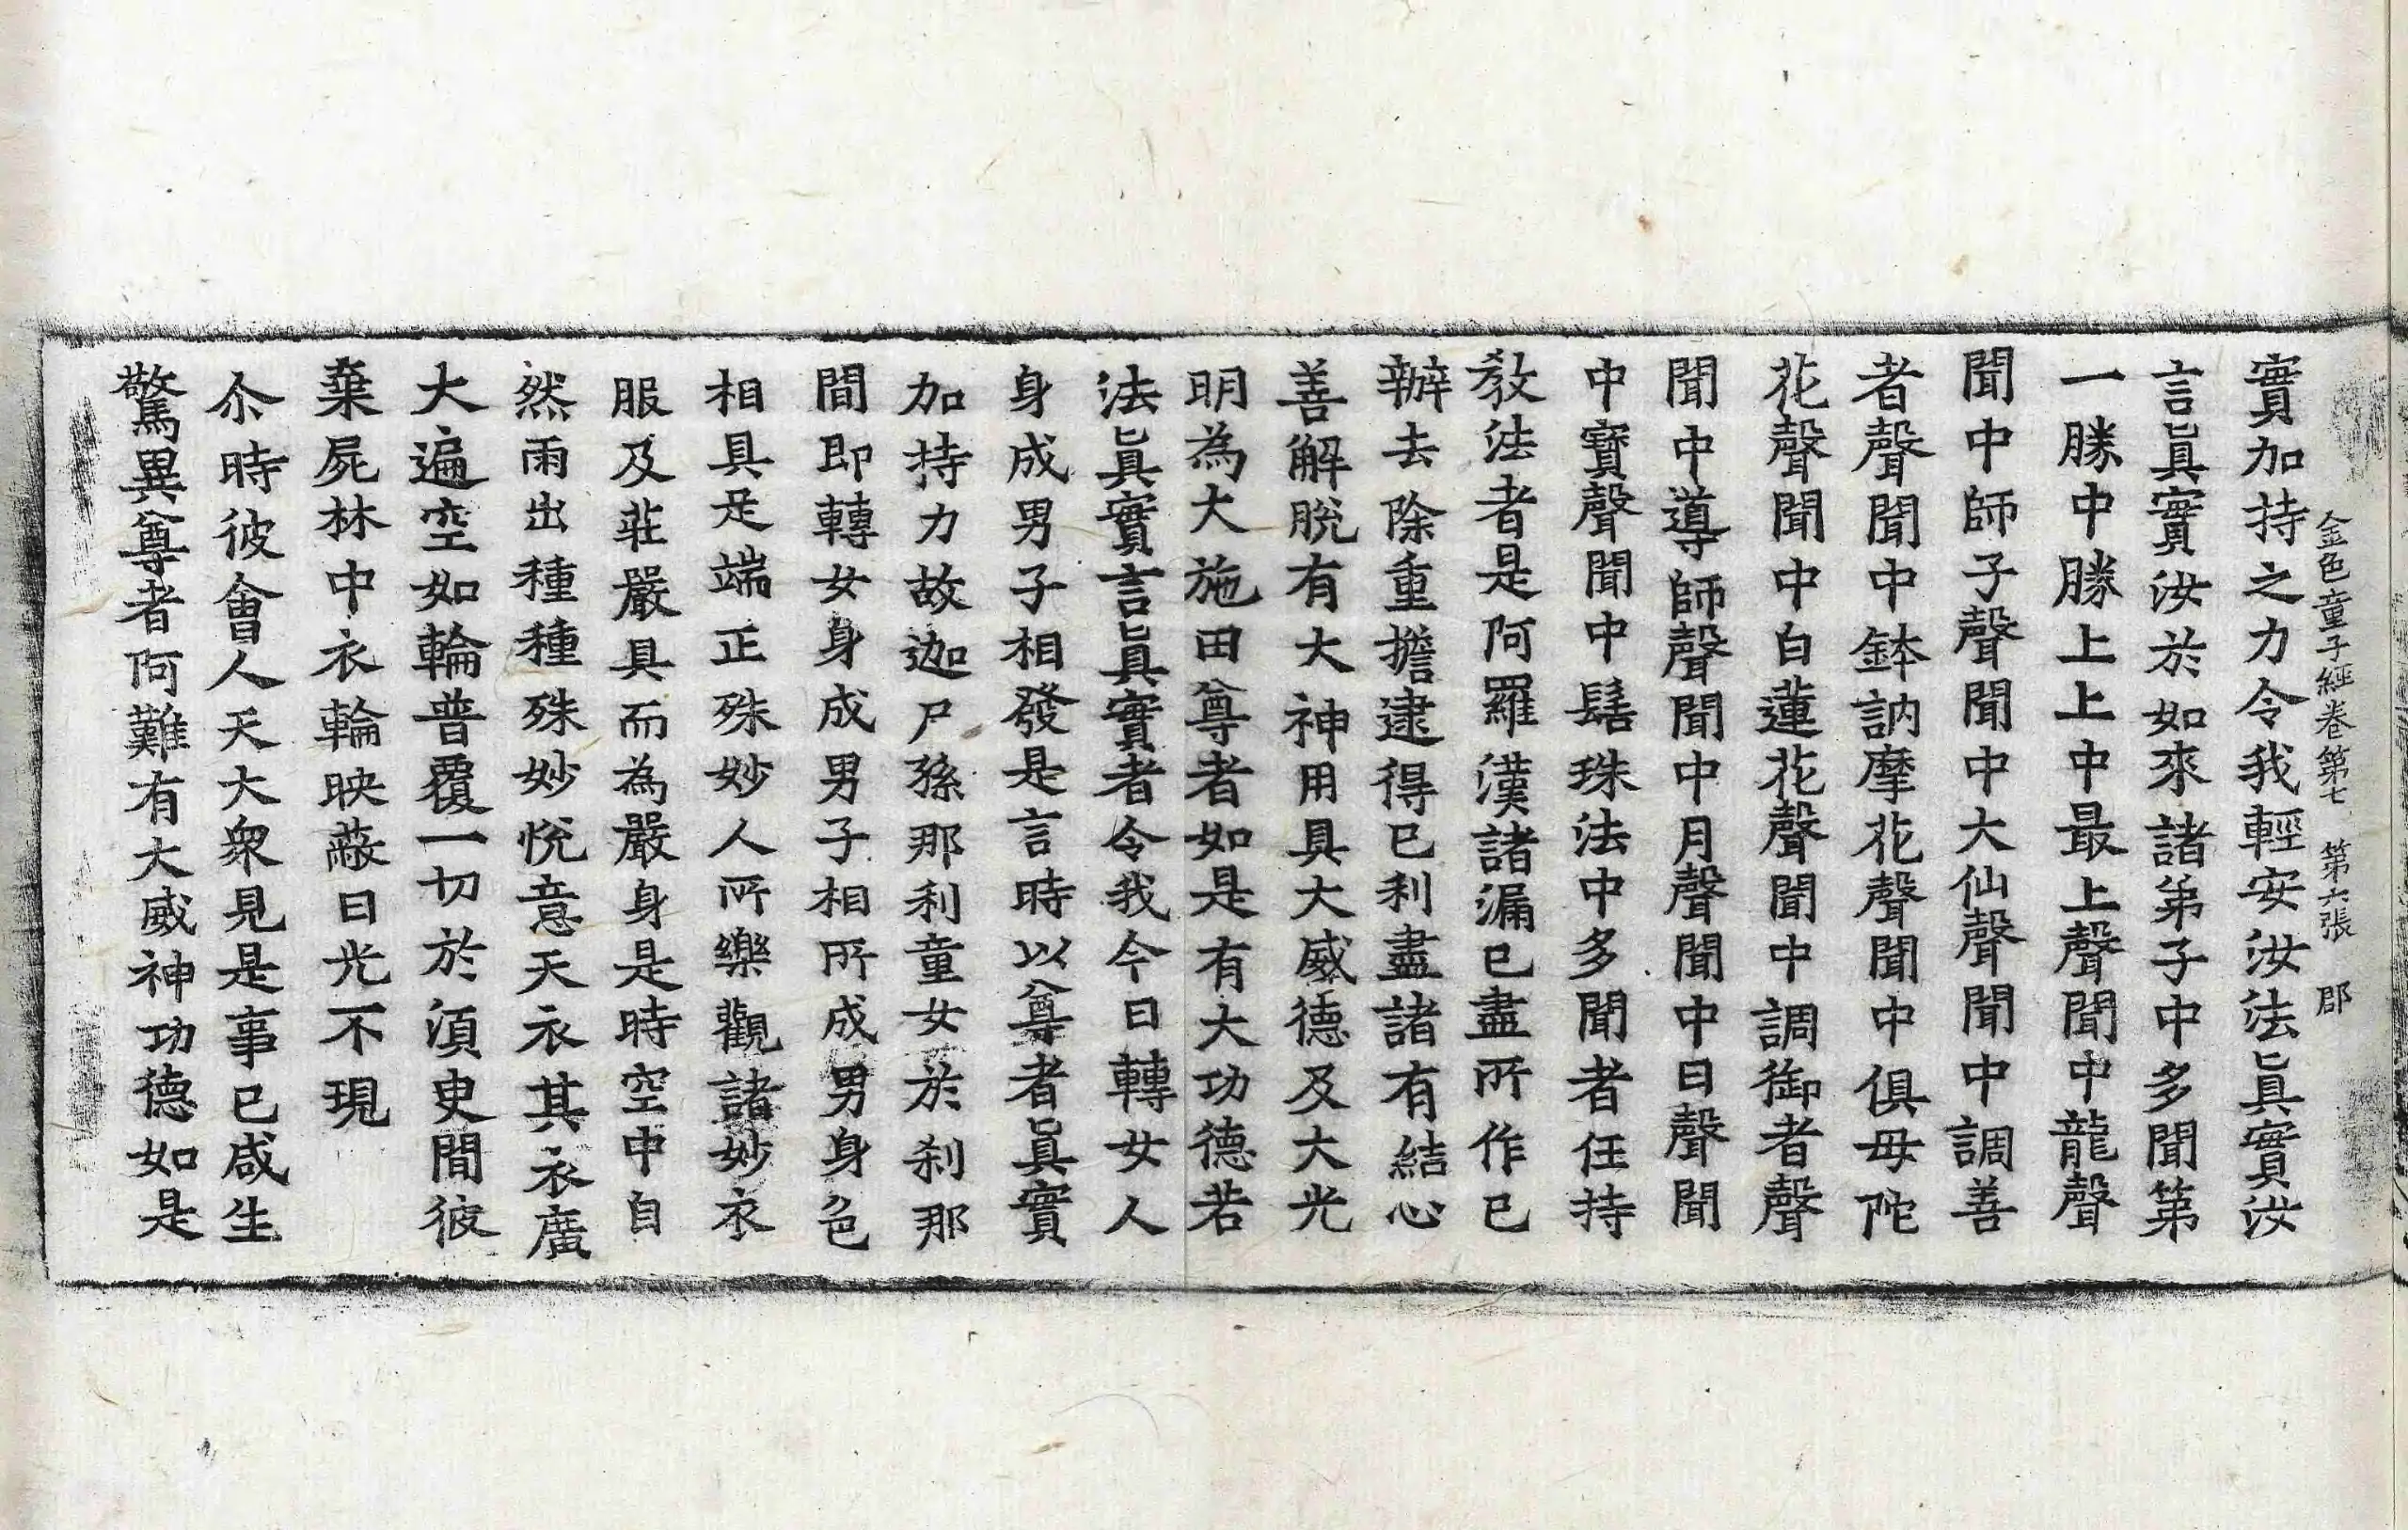 金色童子經卷第七 第六張 郡
實加持之力令我輕安汝法眞實汝
言眞實汝於如來諸弟子中多聞第
一勝中勝上上中最上聲聞中龍聲
聞中師子聲聞中大仙聲聞中調善
者聲聞中鉢訥摩花聲聞中俱母陀
花聲聞中白蓮花聲聞中調御者聲
聞中導師聲聞中月聲聞中日聲聞
中寶聲聞中髻珠法中多聞者任持
教法者是阿羅漢諸漏已盡所作已
辦去除重擔逮得已利盡諸有結心
善解脫有大神用具大威德及大光
明為大施田尊者如是有大功德若
法眞實言眞實者令我今日轉女人
身成男子相發是言時以尊者眞實
加持力故迦尸孫那利童女於刹那
間即轉女身成男子相所成男身色
相具足端正殊妙人所樂觀諸妙衣
服及莊嚴具而為嚴身是時空中自
然雨出種種殊妙悅意天衣其衣廣
大遍空如輪普覆一切於須臾間彼
棄屍林中衣輪映蔽日光不現
尒時彼會人天大衆見是事已咸生
驚異尊者阿難有大威神功德如是